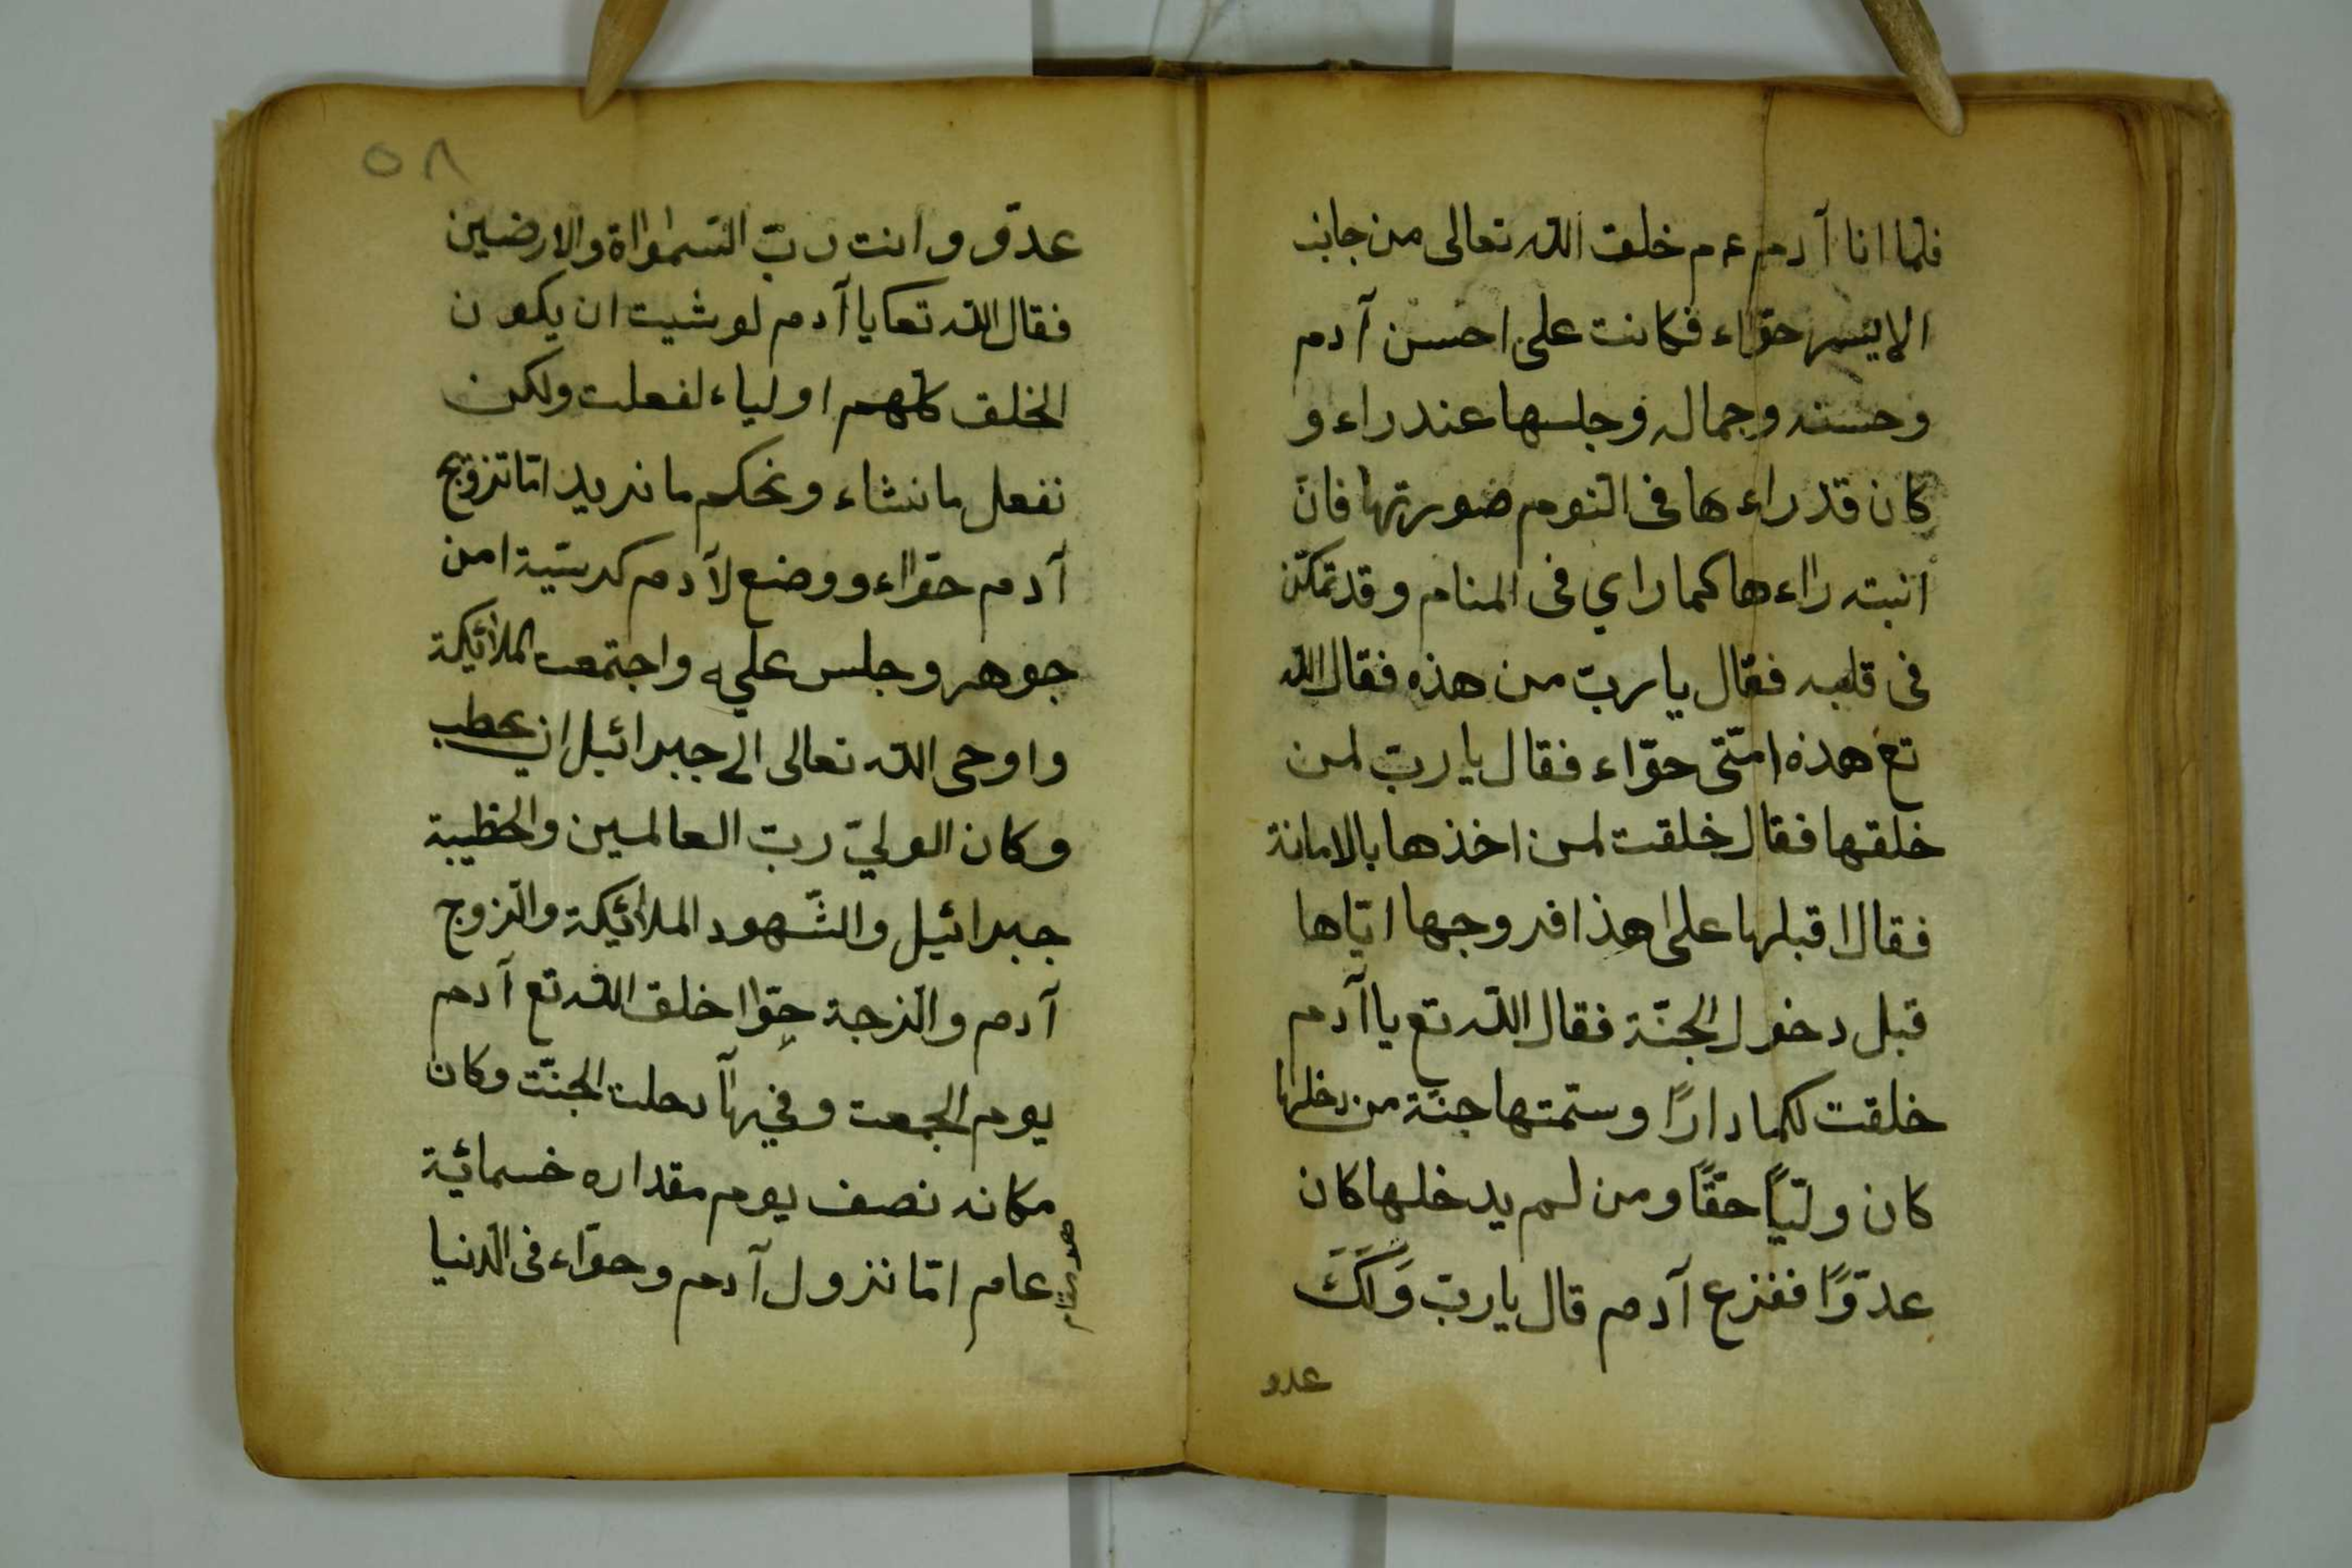 فلما انا آدم عم خلق الله تعالى من جانب
الايسر حوّاء فكانت على احسن آدم
وحسنه وجماله وجلسها عند راء و
كان قد راءها فى النّوم صورتها فان
انبته راءها كما راي فى المنام وقد تمكّن
فى قلبه فقال يا ربّ من هذه فقال الله
تع هذه امّتى حوّاء فقال يا ربّ لمن
خلقها فقال خلقت لمن اخذها بالامانة
فقال اقبلها على هذا فروجها ايّاها
قبل دخول الجنّة فقال الله تع يا آدم
خلقت لكما دارًا وستمتها جنّة من دخلها
كان وليًّا حقًّا ومن لم يدخلها كان
عدوًّا ففزع آدم قال يا ربّ وَلَكَ
عدو
٥٨
عدوّ وانت ربّ السّمواة والارضين
فقال الله تعا يا آدم لو شيت ان يكون
الخلق كلّهم اولياء لفعلت ولكن
نفعل ما نشاء ونحكم ما نريد امّا تزوّج
آدم حوّاء ووضع لآدم كرسيّة امن
جوهر وجلس عليه واجتمعت الملائيكة
واوحى الله تعالى الى جبرائيل ان يخطب
وكان الوليّ ربّ العالمين والخطيبة
جبرائيل والشّهود الملائيكة والزوج
آدم والزجة حوّا خلق الله تع آدم
يوم الجمعت وفيها دحلت الجنّت وكان
مكانه نصف يوم مقداره خسمائية
عام امّا نزول آدم وحوّاء فى الدّنيا